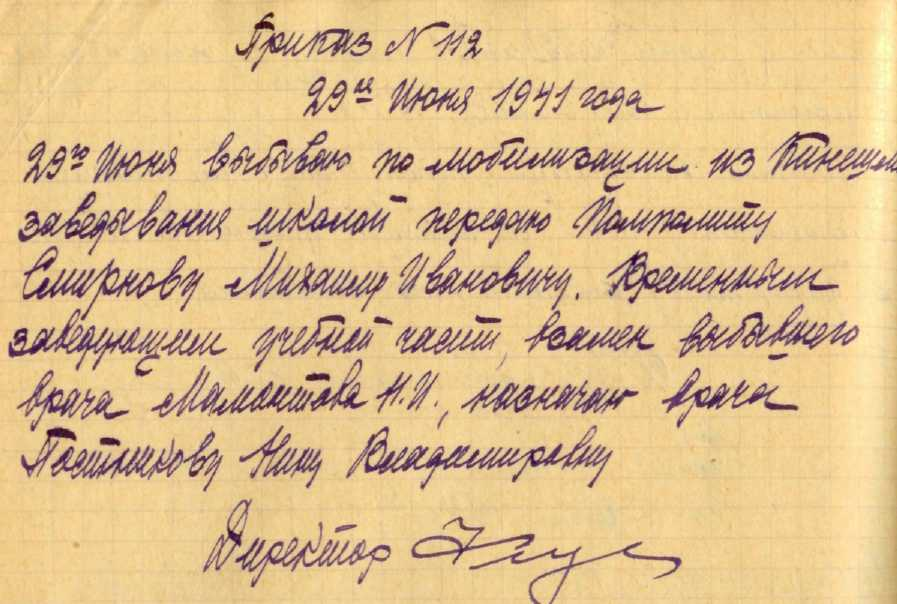 Приказ N 112
29го Июня 1941 года
29го Июня выбываю по мобилизации из
заведывания школой передаю Помполиту
Смирнову Михаилу Ивановичу. Временным
заведующим учебной части, взамен выбывшего
врача Мамонтова Н.И., назначаю врача
Постникову Нину Владимировну
Директор